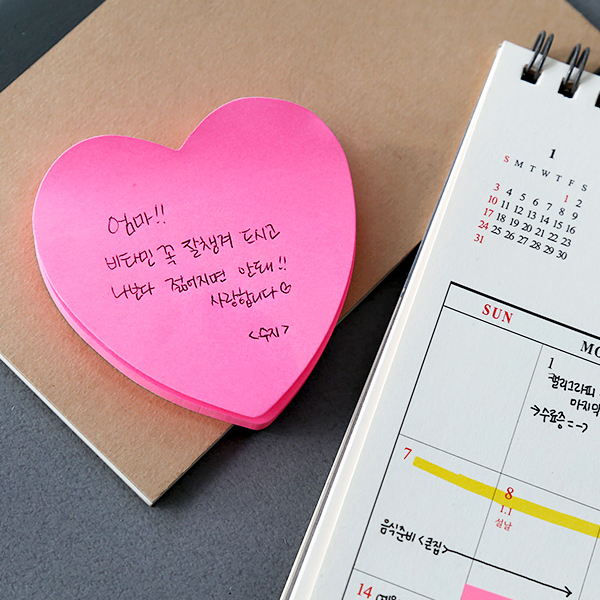 엄마!!
비타민 꼭 잘챙겨 드시고
나보다 젊어지면 안돼!!
사랑합니다♡
<수지>
1
S M T W T F S
1 2
3 4 5 6 7 8 9
10 11 12 13 14 15 16
17 18 19 20 21 22 23
24 25 26 27 28 29 30
31
SUN
MO
1
캘리그라피
마지막
→수료증=→
7
8
1.1
설날
음식준비 <큰집>
14